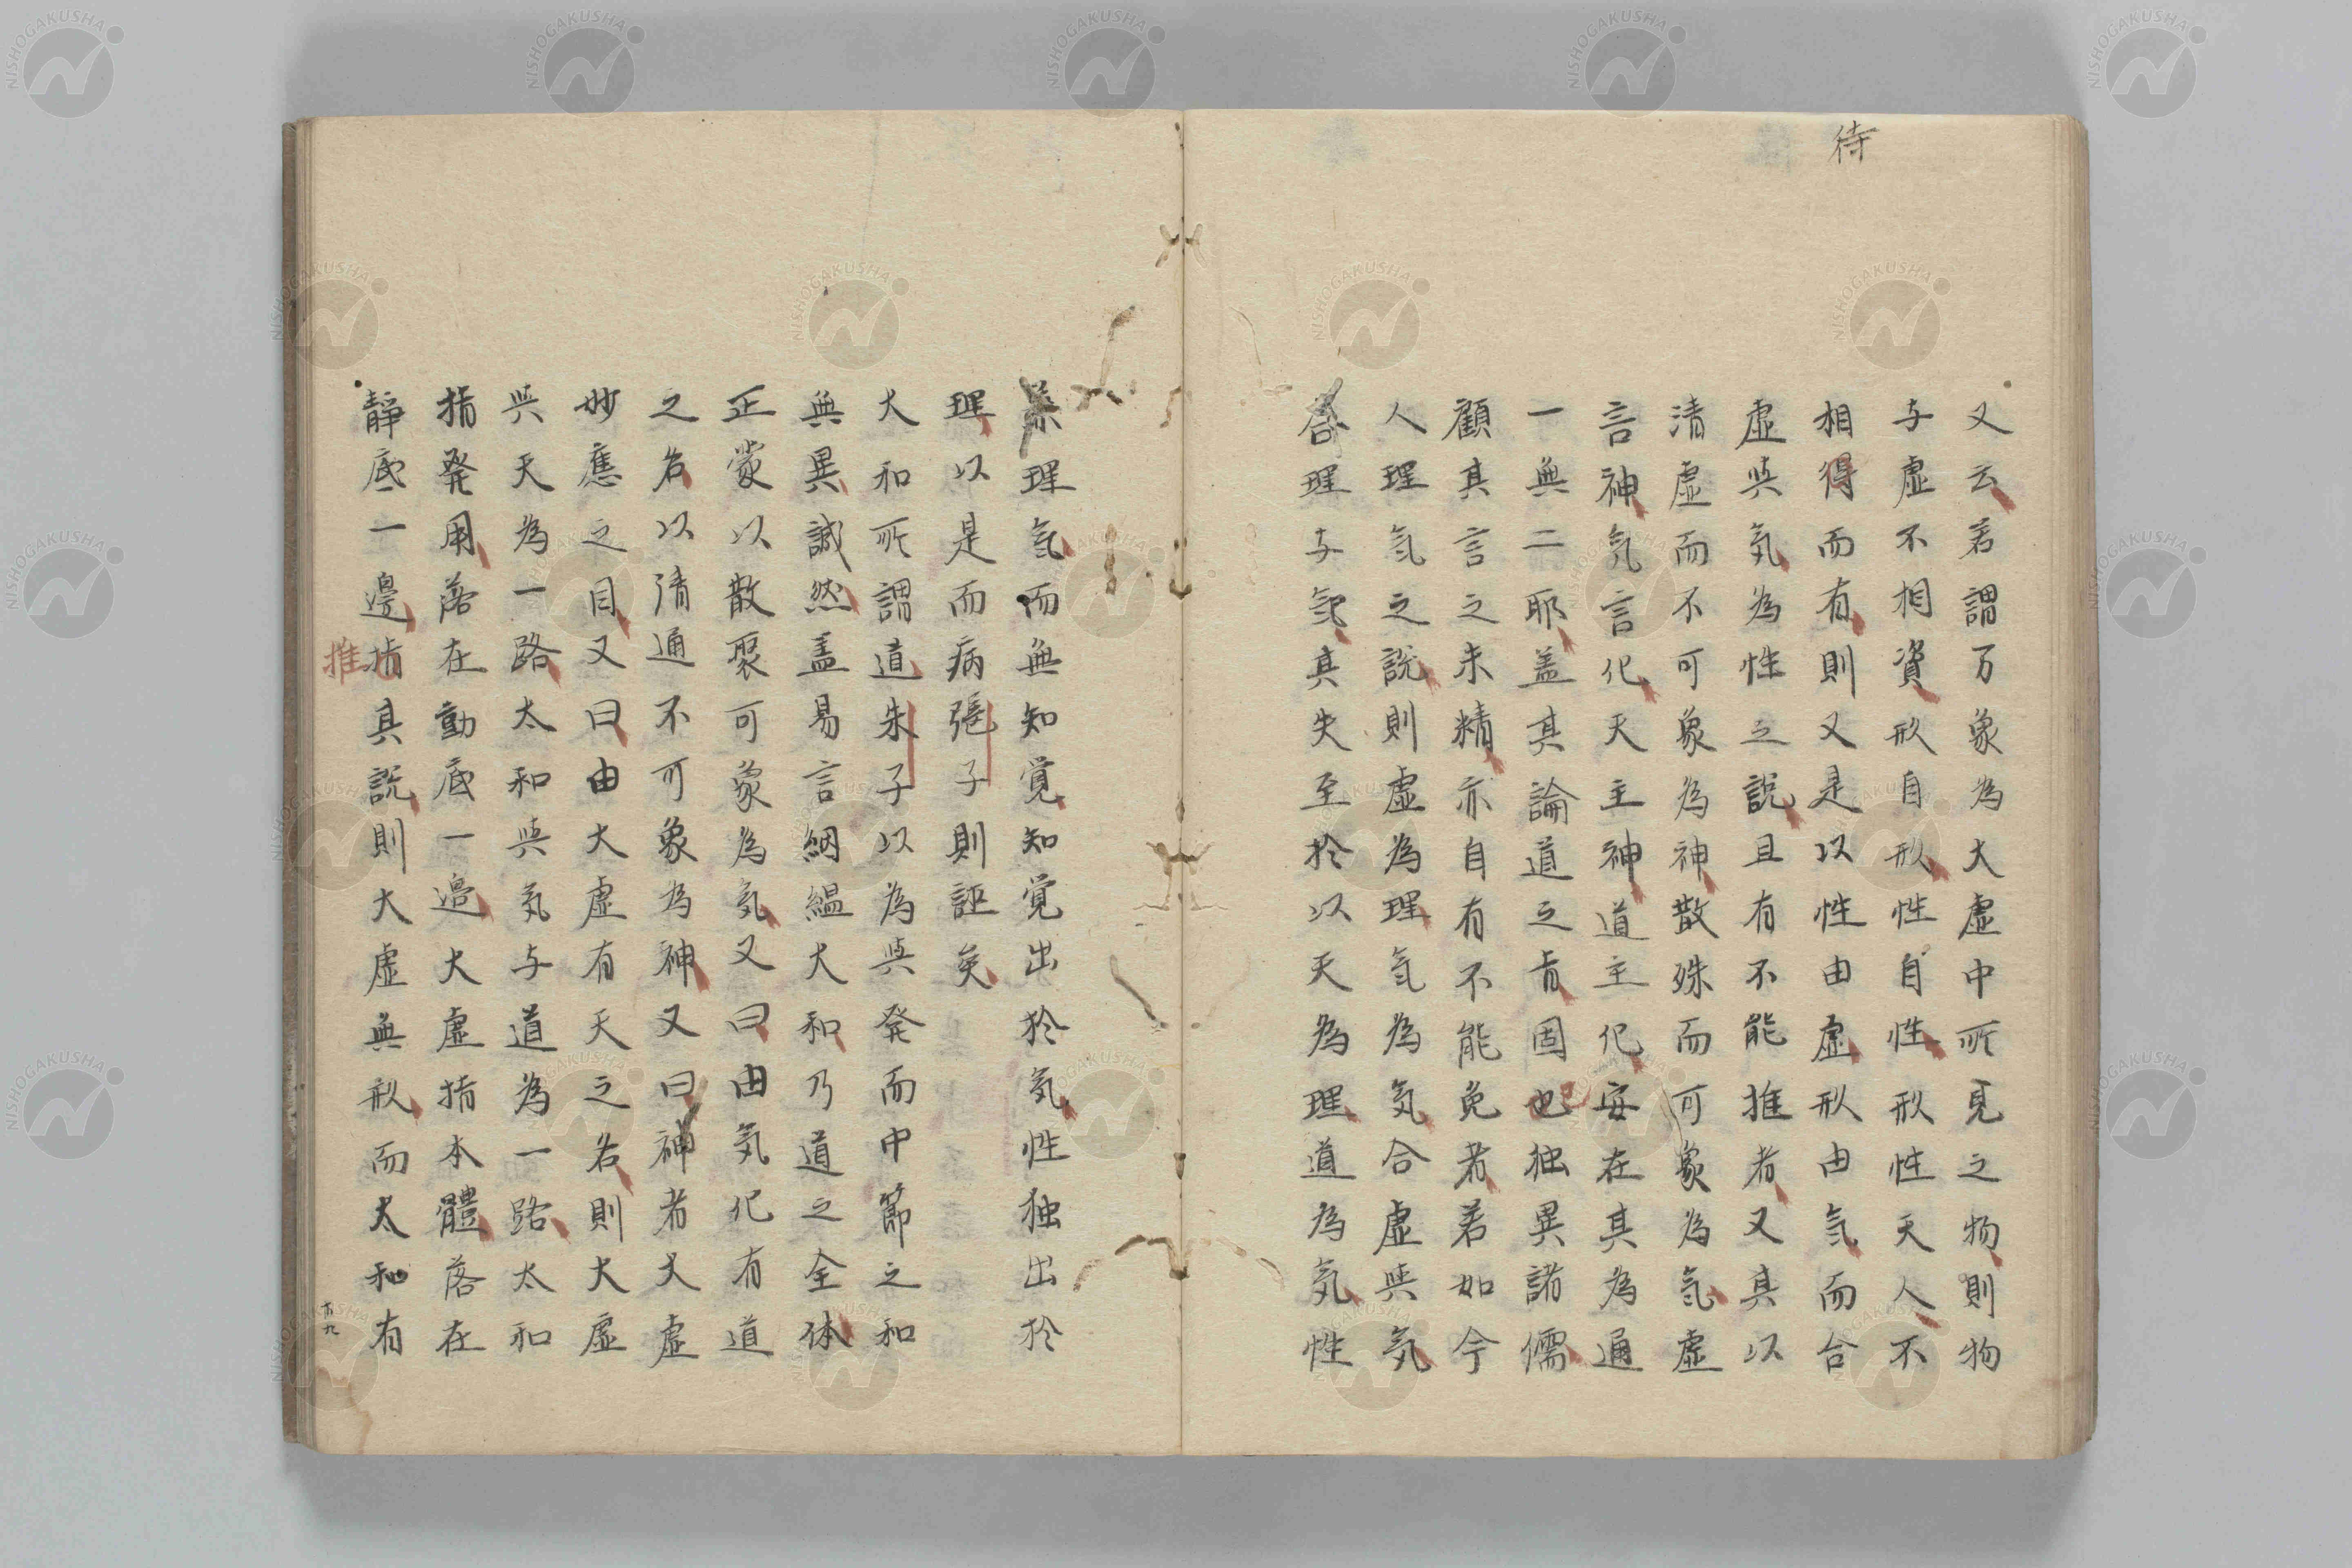 待
又云若謂万象為大虚中所見之物則物
与虚不相資形自形性自性形性天人不
相得而有則又是以性由虚形由気而合
虚與気為性之説且有不能推者又其以
清虚而不可象為神散殊而可象為気虚
言神気言化天主神道主化安在其為通
一無二耶盖其論道之肯固也独異諸儒
顧其言之未精亦自有不能免者若如今
人理気之説則虚為理気為気合虚與気
合理与気其失至於以天為理道為気性
兼理気而無知覚知覚出於気性独出於
理以是而病張子則誣矣
大和所謂道朱子以為與発而中節之和
無異誠然盖易言絪縕大和乃道之全体
正蒙以散聚可象為気又曰由気化有道
之名以清通不可象為神又曰神者大虚
妙應之目又曰由大虚有天之名則大虚
與天為一路太和與気与道為一路太和
指発用落在動底一邉大虚指本體落在
静底一邉指其説則大虚無形而太和有
推
六九
NISHOGAKUSHA